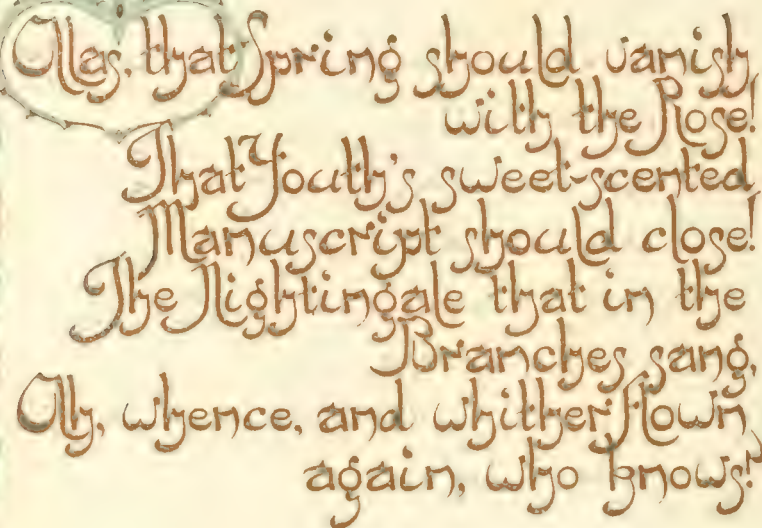 Alas, that Spring should vanish
with the Rose!
That Youth's sweet-scented
Manuscript should close!
The Nightingale that in the
Branches sang,
Ah, whence, and whither flown
again, who knows!